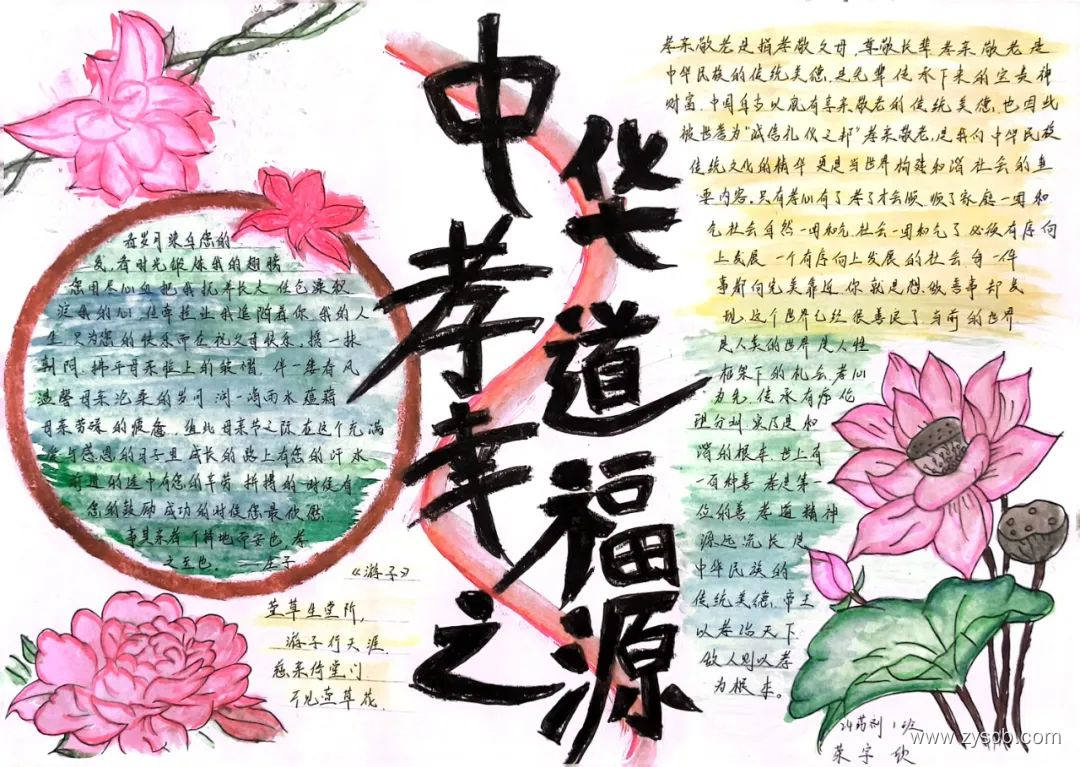 中华孝道
幸福之源
孝亲敬老是指孝敬父母,尊敬长辈孝亲敬老是
中华民族的传统美德,是先辈传承下来的宝贵神
财富.中国自古以就有孝亲敬老的传统美德,也因此
被世誉为"诚信礼仪之邦"孝亲敬老,是我们中华民族
传统文化的精华更是当世界构建和谐社会的重
要内容,只有孝心有了孝了才会顺,顺了家庭一团和
气社会自然一团和气社会一团和气了必没有序向
上发展一个有序向上发展的社会自一件
事都向完美靠近.你就是想做善事却发
现,这个世界已经很善良了当前的世界
是人类的世界是人性
框架下的礼会,孝心
为先,传承有
是和
谐的根本.世上有
一百种善孝是第一
位的善.孝道精神
源远流长是
中华民族的
传统美德,帝王
以孝治天下
做人则以孝
为根本。
看岁月染白您的
发,看时光锻炼我的翅膀
您用尽心血把我抚养长大
我的心 让我追随着你,我的人
生只为您的快乐而在祝父母快乐,摘一抹
朝阳 拂平母亲脸上的皱褶 伴一缕春风
母亲沧桑的岁月 润一滴雨水蕴藉
母亲劳碌的疲惫 值此母亲节之际在这个充满
感恩的日子里成长的路上有您的汗水
前进的途中有您的辛劳 拼搏的时候有
您的鼓励 成功的时候您最欣慰.
事其亲者 不择地而安也 孝
之至也 ——庄子
《游子》
萱草生堂阶,
游子行天涯.
慈亲倚堂门
不见萱草花.
24药剂1班
荣宇欣
www.zyspb.com